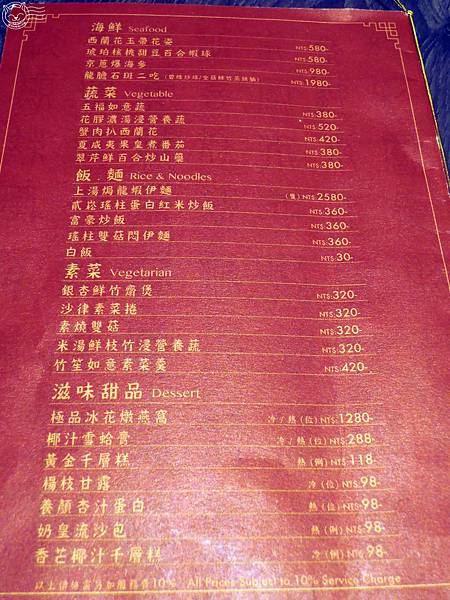 海鮮 Seafood
西蘭花玉帶花姿 NT$:580-
琥珀核桃甜豆百合蝦球 NT$:580-
京蔥爆海參 NT$:980-
龍膽石斑二吃 NT$:1980-
蔬菜 Vegetable
五福如意蔬 NT$:380-
花膠濃湯浸營養蔬 NT$:520-
蟹肉扒西蘭花 NT$:420-
夏威夷果皇煮番茄 NT$:380-
翠芹鮮百合炒山藥 NT$:380-
飯．麵 Rice & Noodles
上湯焗龍蝦伊麵 (隻) NT$:2580-
貳崧瑤柱蛋白紅米炒飯 NT$:360-
富豪炒飯 NT$:360-
瑤柱雙菇悶伊麵 NT$:360-
白飯 NT$:30-
素菜 Vegetarian
銀杏鮮竹齋煲 NT$:320-
沙律素菜捲 NT$:320-
素燒雙菇 NT$:320-
米湯鮮枝竹浸營養蔬 NT$:320-
竹笙如意素菜羹 NT$:420-
滋味甜品 Dessert
極品冰花燉燕窩 冷/熱(位) NT$:1280-
椰汁雪蛤膏 冷/熱(位) NT$:288-
黃金千層糕 熱(例) NT$:118-
楊枝甘露 冷(位) NT$:98-
養顏杏汁蛋白 熱(位) NT$:98-
奶皇流沙包 熱(例) NT$:98-
香芒椰汁千層糕 冷(例) NT$:98-
以上價格需另加服務費10% All Prices Subject to 10% Service Charge